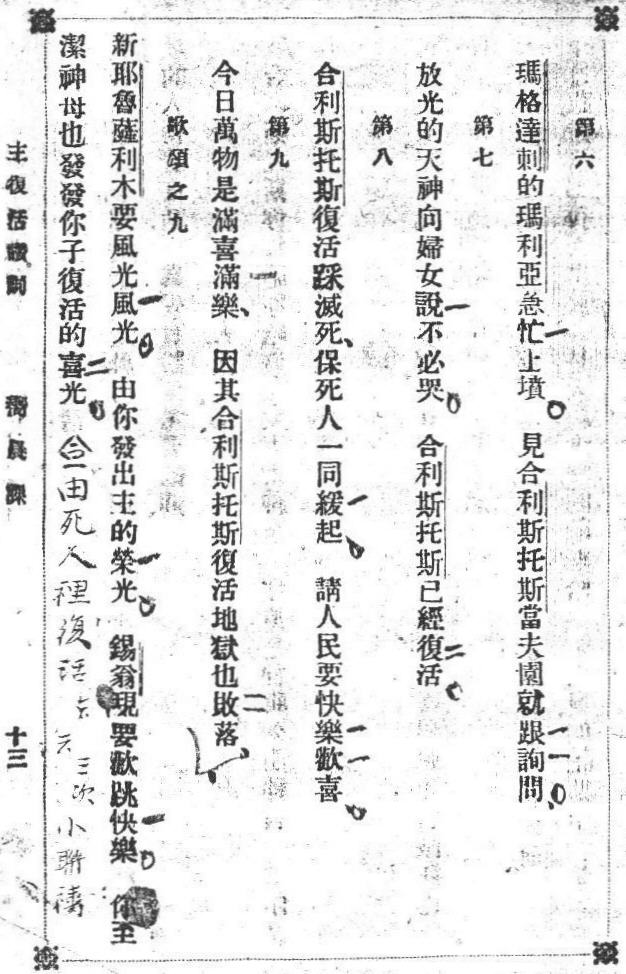 第六
瑪格達剌的瑪利亞急忙上墳　見合利斯托斯當夫園就跟詢問
第七
放光的天神向婦女說不必哭　合利斯托斯已經復活
第八
合利斯托斯復活踩滅死、保死人一同緩起　請人民要快樂歡喜
第九
今日萬物是滿喜滿樂、因其合利斯托斯復活地獄也敗落
歌頌之九
新耶魯薩利木要風光風光　由你發出主的榮光　錫翁現要歡跳快樂　你至
潔神母也發發你子復活的喜光　合一由死人裡復活 三次小聯禱
主復活讚詞　晨課　十三